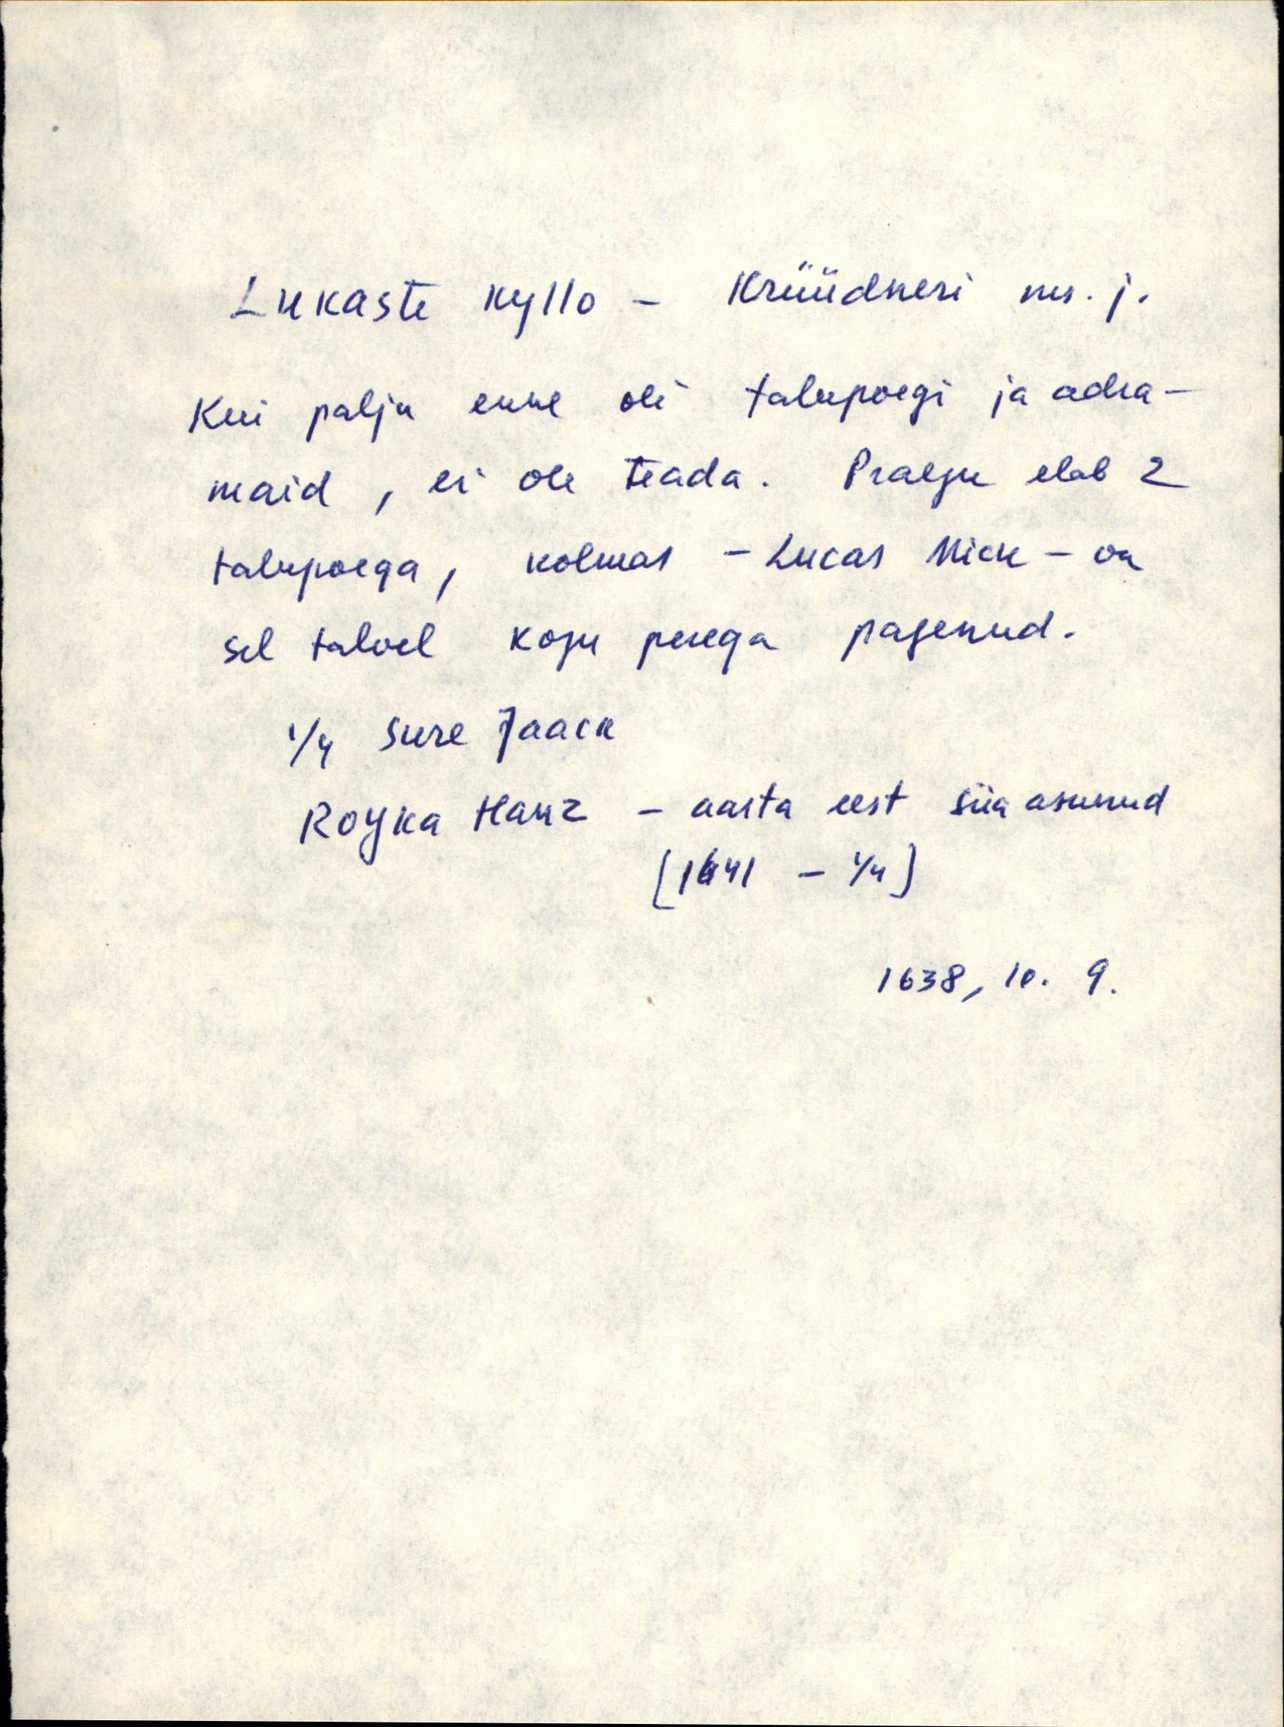 Lukaste Kyllo – Krüüdneri ms. j.
Kui palju enne oli talupoegi ja adra-
maid, ei ole teada. Praegu elab 2
talupoega, kolmas – Lucas Mick – on
sel talvel kogu perega pagenud.
1/4 Sure Jaack
Royka Hanz – aasta eest siia asunud
[1641 – 1/4]
1638, 10. 9.